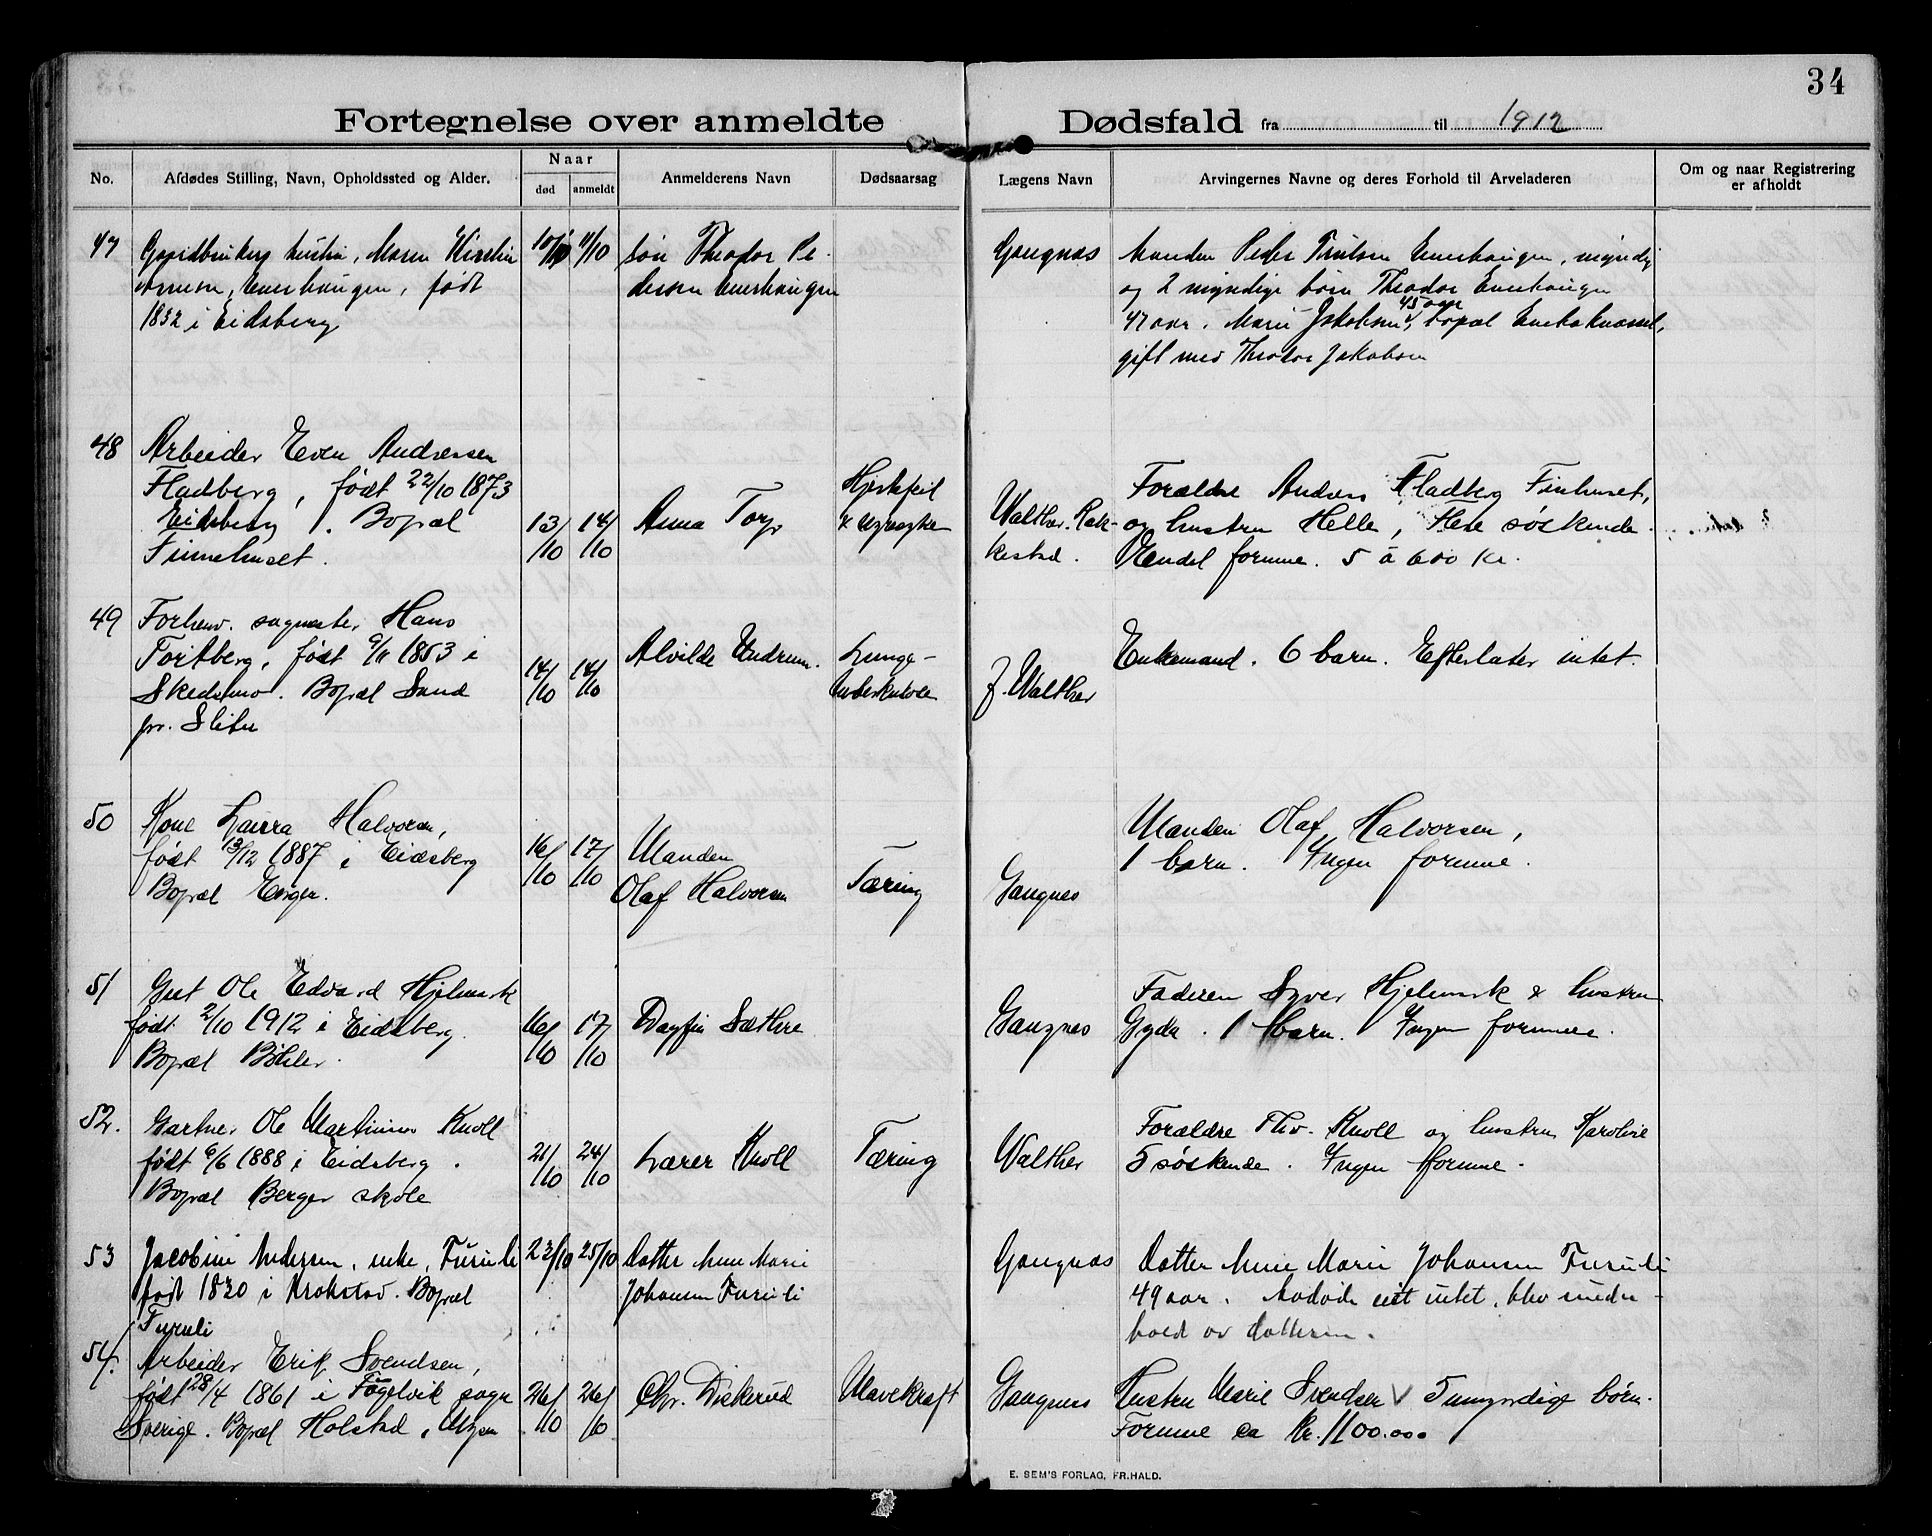 34
Fortegnelse over anmeldte Dødsfald fra til 1912
No.
Afdødes Stilling, Navn, Opholdssted og Alder.
Naar
død
anmeldt
Anmelderens Navn
Dødsaarsag
Lægens Navn
Arvingernes Navne og deres Forhold til Arveladeren
Om og naar Registrering
er afholdt
47
hustru, Maren
født
1832 i Eidsberg
10/10
11/10
søn Theodor Pe-
dersen Enerhaugen
Gangnæs
Manden Peder Enerhaugen, myndig
og 2 myndige børn Theodor Enerhaugen
45 aar
47 aar. Marie Jakobsen, bopæl
gift med Theodor Jakobsen
48
Arbeider Even Andersen
Fladberg, født 22/10 1873
Eidsberg. Bopæl
Finnehuset.
13/10
14/10
Anna Torp
Hjertefeil
Walther. Rak-
kestad.
Forældre Anders Fladberg Finhuset,
og hustru Helle, flere søskende.
Hendel formue. 5 à 600 Kr.
49
Forhenv. sagmester Hans
Toritberg, født 9/11 1853 i
Skedsmo. Bopæl Sand
pr. Slitu
14/10
14/10
Alvilde Undrum.
Lunge-
tuberkulose
J. Walther
Enkemand. 6 barn. Efterlater intet.
50
Kone Laura Halvorsen,
født 13/12 1887 i Eidsberg
Bopæl Enger.
16/10
17/10
Manden
Olaf Halvorsen
Tæring
Gangnes
Manden Olaf Halvorsen,
1 barn. Ingen formue.
51
Gut Ole Edvard Hjelmark
født 2/10 1912 i Eidsberg.
Bopæl Bøhler.
16/10
17/10
Dagfin Sæthre
Gangnes
Faderen Syver Hjelmark & hustru
Gyda. 1 barn. Ingen formue.
52.
Gartner Ole Martinius Knoll
født 6/6 1888 i Eidsberg.
Bopæl Berger skole
21/10
24/10
Lærer Knoll
Tæring
Walther
Forældre Thv. Knoll og hustru Karoline
5 søskende. Ingen formue.
53
Jacobine Andersen, enke, Furuli
født 1830 i Krokstad. Bopæl
Furuli
23/10
25/10
Datter Anne Marie
Johansen Furuli
Gangnæs
Datter Anne Marie Johansen Furuli
49 aar. Avdøde eiet intet, blev under-
hold av datteren.
54.
Arbeider Erik Svendsen,
født 28/4 1861 i Fogelvik sogn
Sverige. Bopæl Holstad, Mysen
26/10
26/10
Chr. Diskerud
Mavekræft
Gangnes
Hustru Marie Svendsen 5 umyndige børn.
Formue ca Kr. 1100.00.
E. SEM'S FORLAG, FR.HALD.